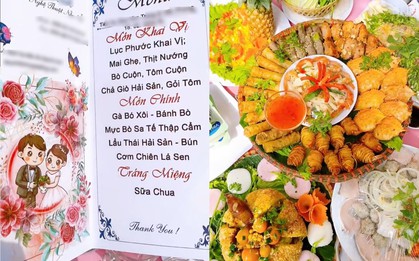 Menu
Món Khai Vị
Lục Phước Khai Vị;
Mai Ghẹ, Thịt Nướng
Bò Cuộn, Tôm Cuộn
Chả Giò Hải Sản, Gỏi Tôm
Món Chính
Gà Bó Xôi - Bánh Bò
Mực Bò Sa Tế Thập Cẩm
Lẩu Thái Hải Sản - Bún
Cơm Chiên Lá Sen
Tráng Miệng
Sữa Chua
Thank You !